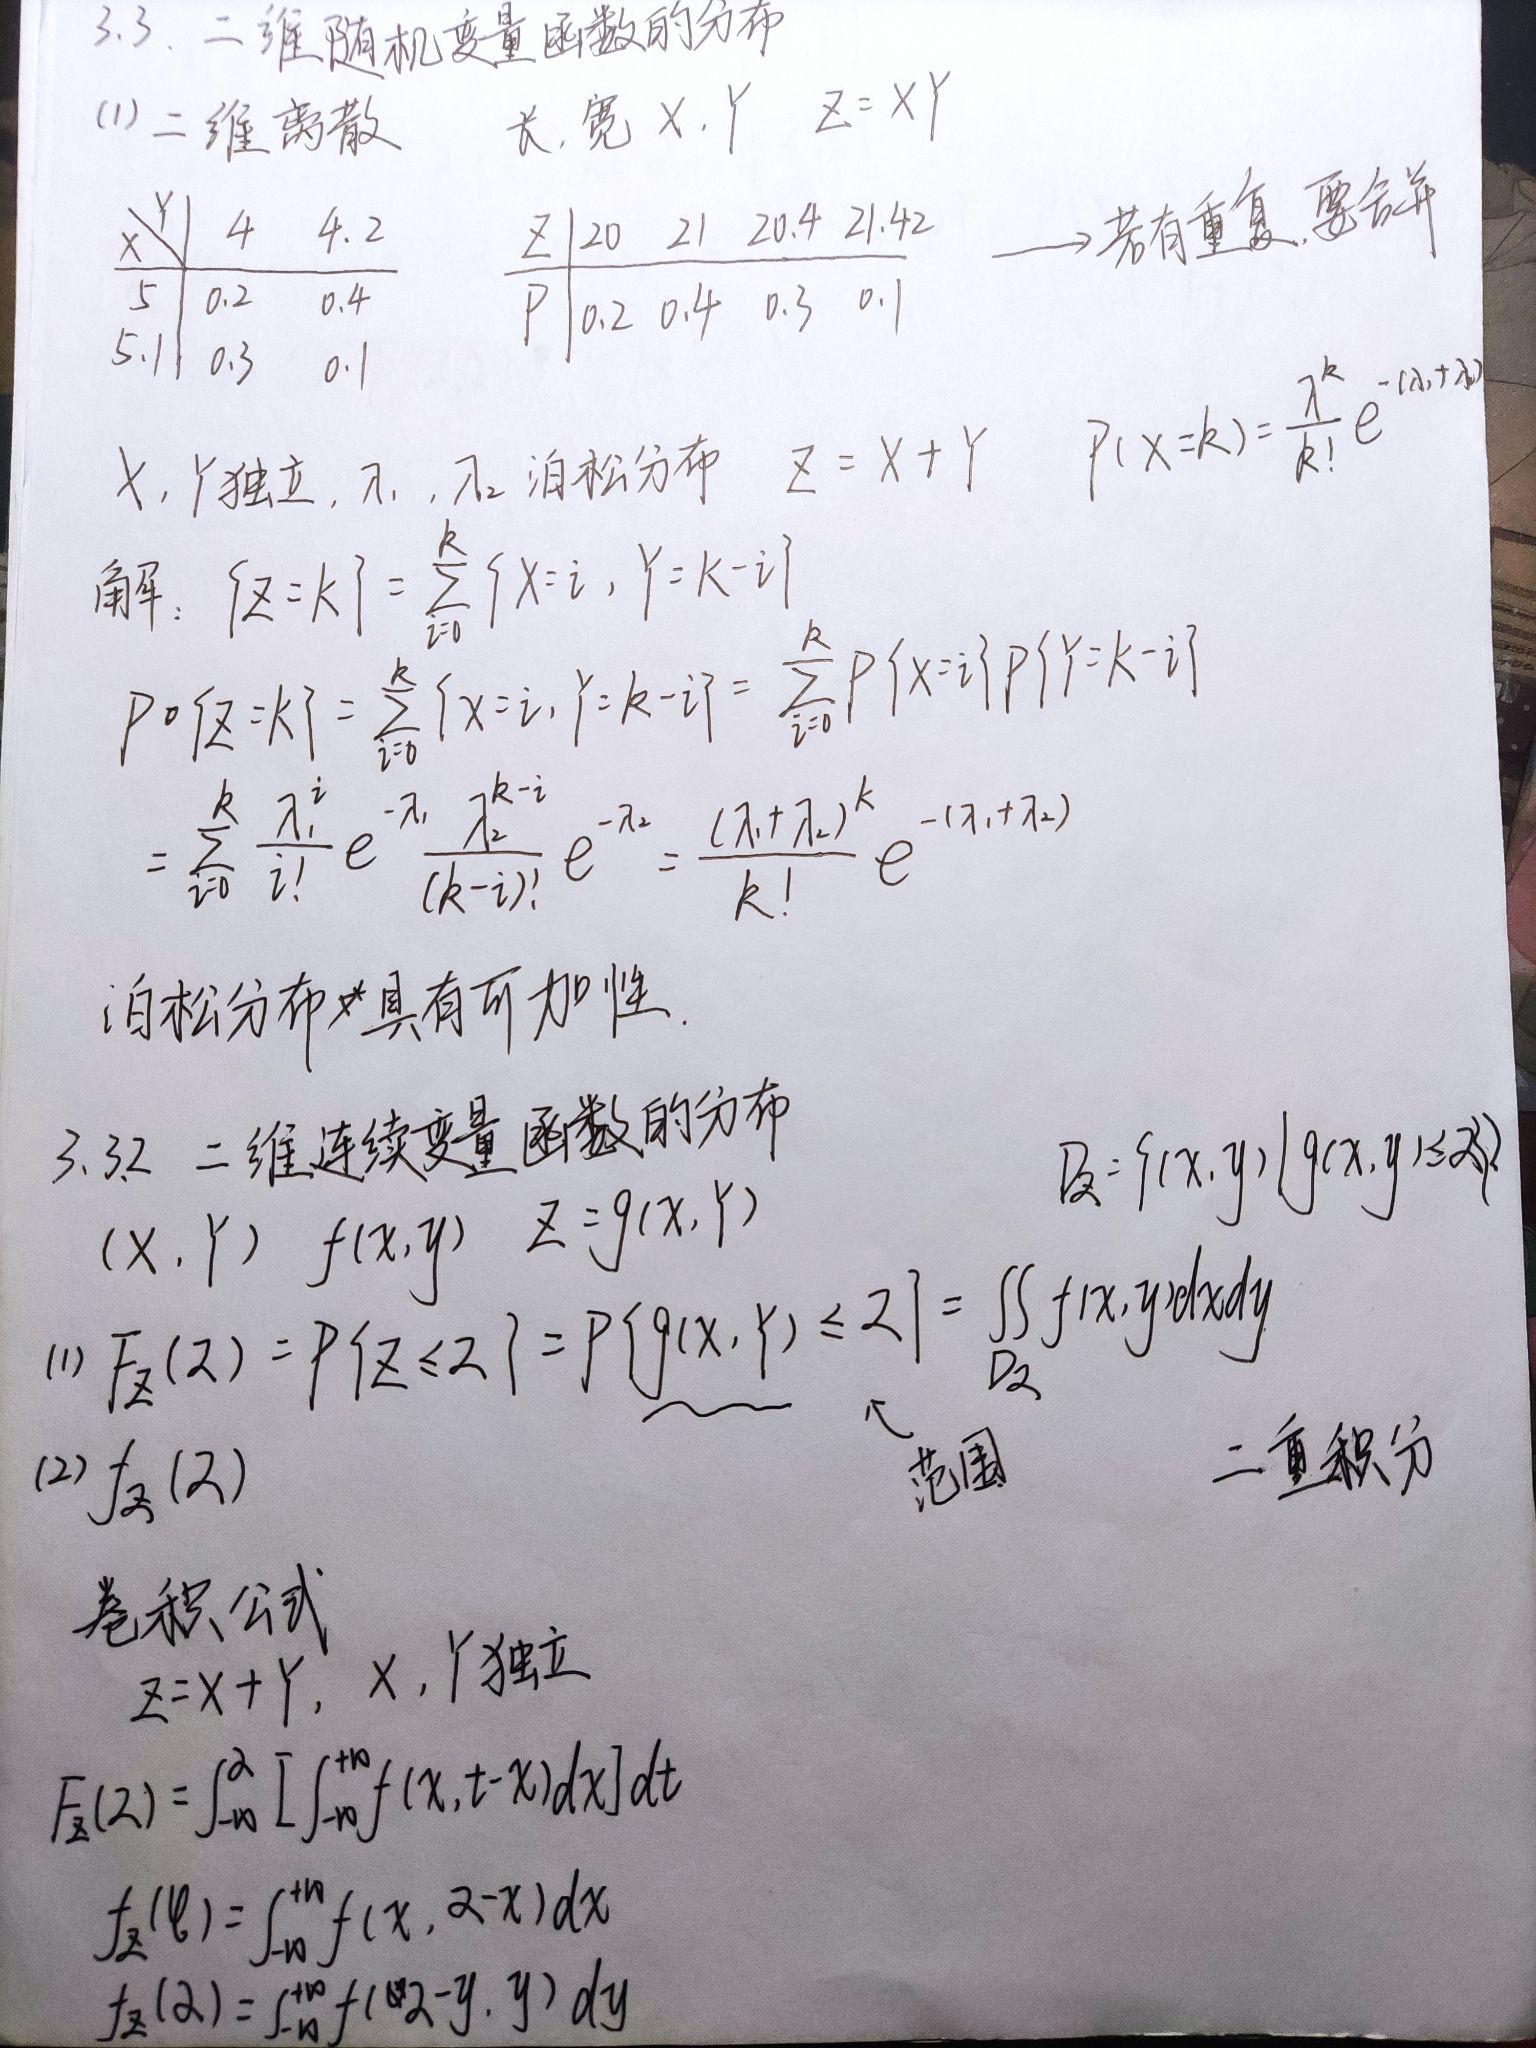 3.3. 二维随机变量函数的分布
(1) 二维离散 长,宽 X,Y Z=XY
X\Y 4 4.2
5 0.2 0.4
5.1 0.3 0.1
Z 20 21 20.4 21.42
P 0.2 0.4 0.3 0.1
→若有重复,要合并
X,Y独立,λ₁,λ₂泊松分布 Z=X+Y P(X=k)=λ^k/k! e^-(λ₁+λ₂)
解: {Z=k}=∑_{i=0}^{k}{X=i,Y=k-i}
P{Z=k}=∑_{i=0}^{k}{X=i,Y=k-i}=∑_{i=0}^{k}P{X=i}P{Y=k-i}
=∑_{i=0}^{k} λ₁^i/i! e^{-λ₁} λ₂^{k-i}/(k-i)! e^{-λ₂}=(λ₁+λ₂)^k/k! e^{-(λ₁+λ₂)}
泊松分布具有可加性.
3.3.2 二维连续变量函数的分布
(X,Y) f(x,y) Z=g(X,Y) D_z={(x,y)|g(x,y)≤z}
(1) F_Z(z)=P{Z≤z}=P{g(X,Y)≤z}=∬_{D_z} f(x,y)dxdy
↖范围 二重积分
(2) f_Z(z)
卷积公式
Z=X+Y, X,Y独立
F_Z(z)=∫_{-∞}^{z}[∫_{-∞}^{+∞}f(x,t-x)dx]dt
f_Z(z)=∫_{-∞}^{+∞}f(x,z-x)dx
f_Z(z)=∫_{-∞}^{+∞}f(z-y,y)dy